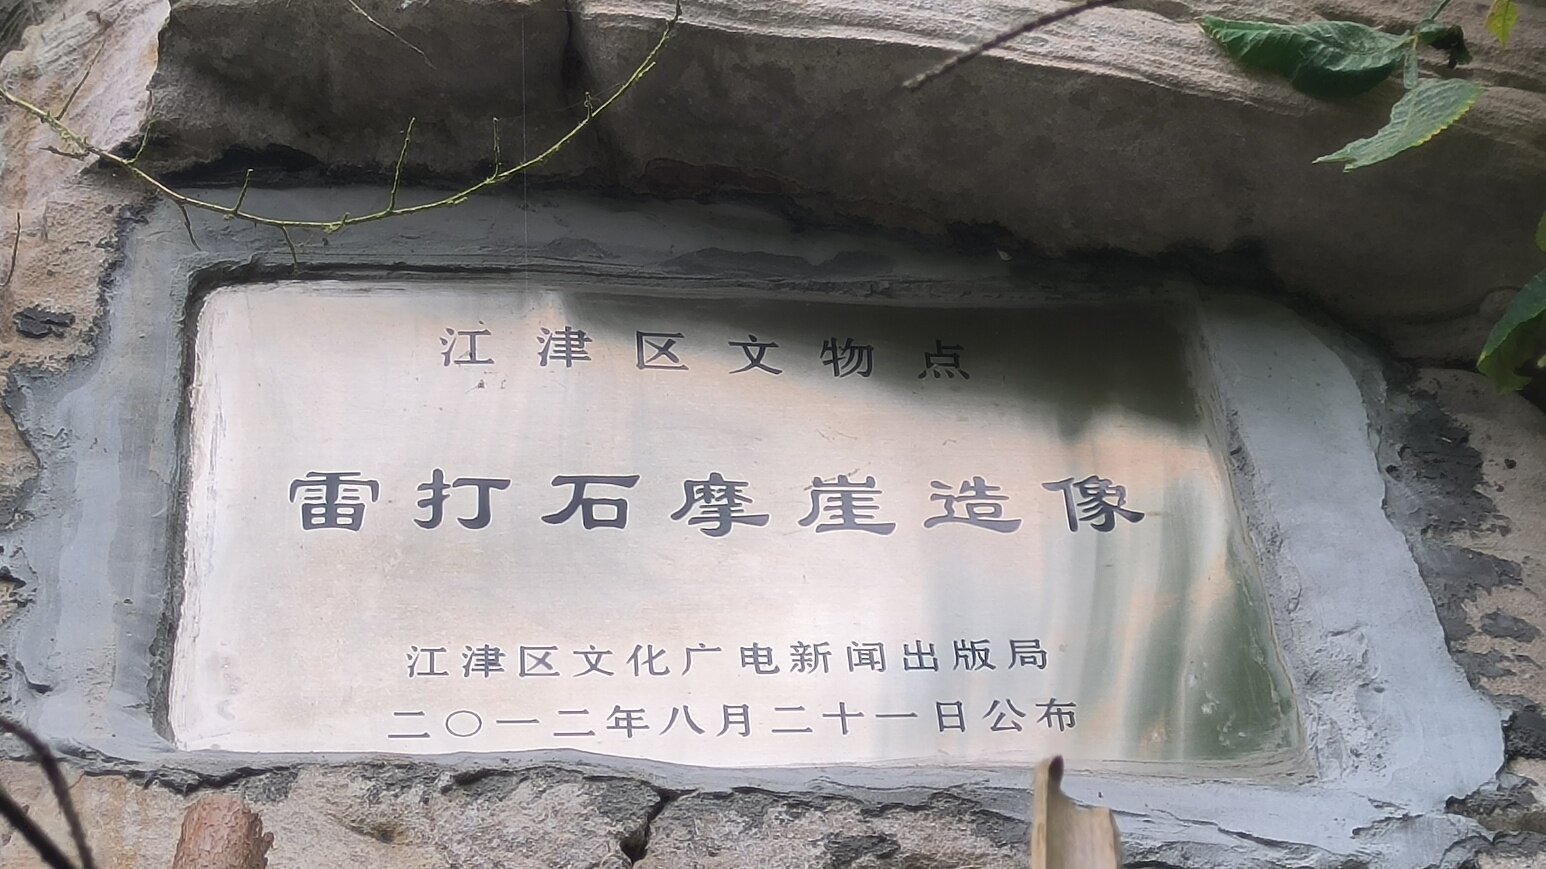 江津区文物点
雷打石摩崖造像
江津区文化广电新闻出版局
二〇一二年八月二十一日公布